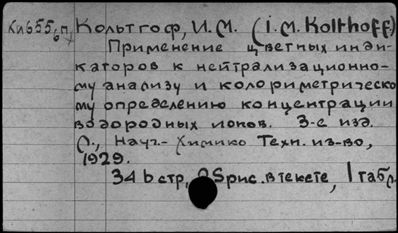 Кольтгоф, И.М. (I.M. Kolthoff)
Применение цветных инди-
каторов к нейтрализационно-
му анализу и колориметрическо
му определению концентрации
водородных ионов. 3-е изд.
Л., Науч.- Химико Техн. из-во,
1929.
рис. в тексте, 1 табл.